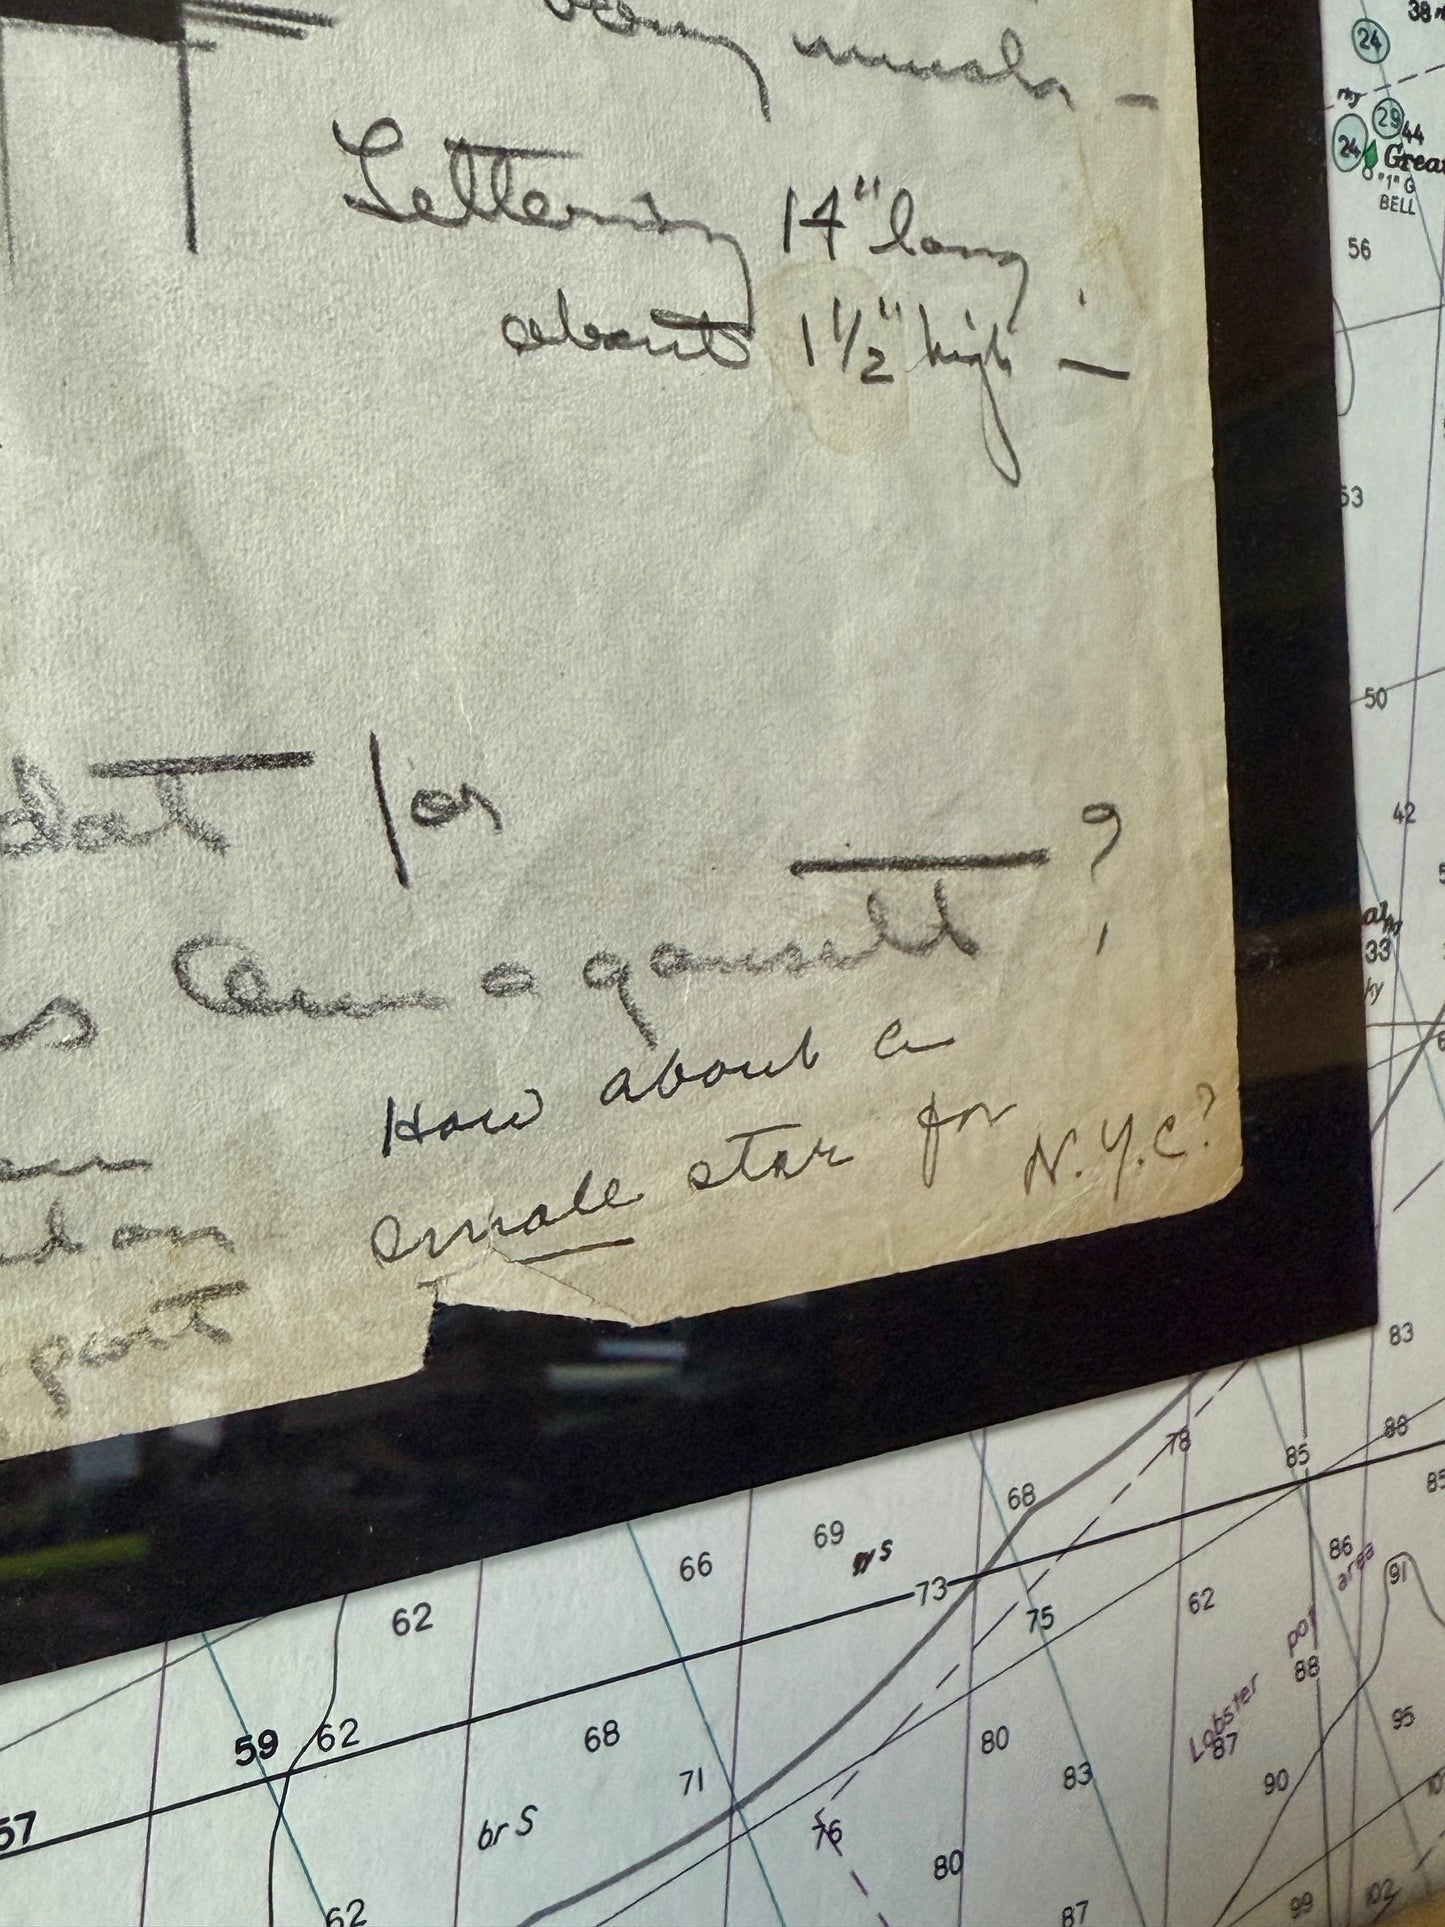 much —
Lettering 14" long
about 1 1/2" high —
dot / or
?
as Amagansett
How about a
small star for
N.Y.C?
part
38
24
rky
29
44
24
Great
"1" G
BELL
56
53
50
42
33
ky
83
78
85
88
85
68
69
66
gy S
73
86
area
91
62
75
62
pot
88
Lobster
87
95
59
62
68
80
57
71
83
90
br S
76
80
62
87
99
102